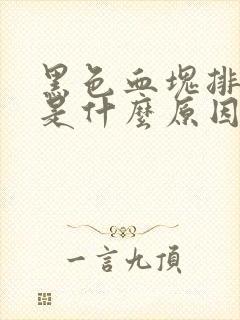 黑色血塊排
是什麼原因
一言九頂